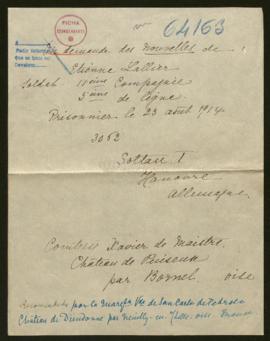 FICHA
COMENZANTE
64163
On demande des nouvelles de
Etienne Lallier
Soldat 11ème Compagnie
5ème de ligne
Prisonnier le 23 août 1914
3052
Soltau I
Hanovre
Allemagne
Comtesse Xavier de Maistre
Château de
par Bornel. oise
por la Marq^sa V^de de San Carlos de Pedroso
Château de Dieudonne par Neuilly-en-Thelle. oise. France